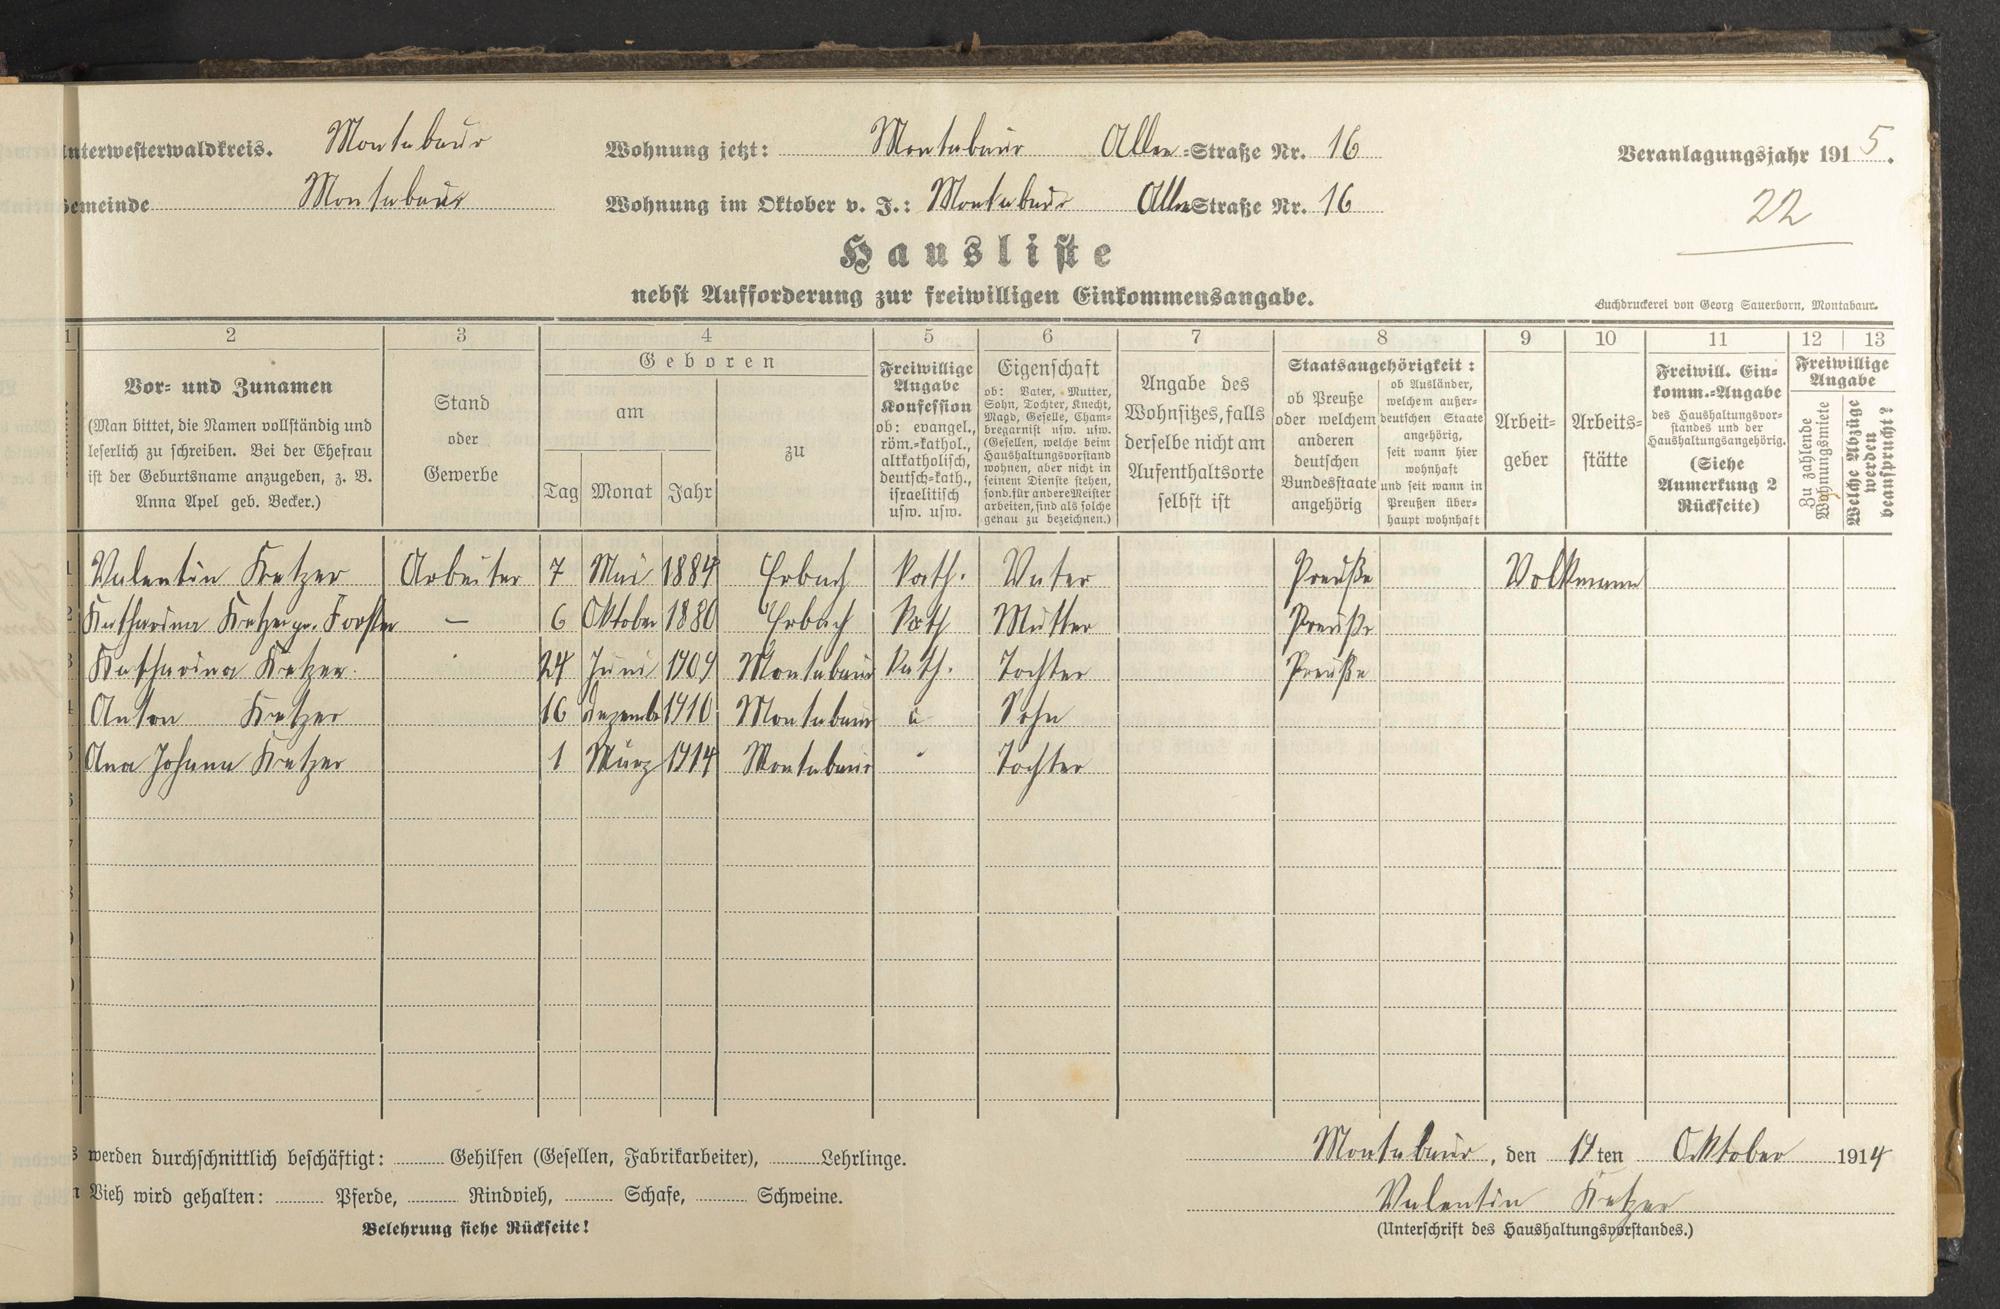 Unterwesterwaldkreis. Montabaur Wohnung jetzt: Montabaur Allee-Straße Nr. 16 Veranlagungsjahr 1915.
Gemeinde Montabaur Wohnung im Oktober v. J.: Montabaur Allee Straße Nr. 16
22
Hausliste
nebst Aufforderung zur freiwilligen Einkommensangabe.
Buchdruckerei von Georg Sauerborn, Montabaur.
1 2 3 4 5 6 7 8 9 10 11 12 13
Vor- und Zunamen
(Man bittet, die Namen vollständig und
leserlich zu schreiben. Bei der Ehefrau
ist der Geburtsname anzugeben, z. B.
Anna Apel geb. Becker.)
Stand
oder
Gewerbe
Geboren
am
Tag Monat Jahr
zu
Freiwillige
Angabe
Konfession
ob: evangel.,
röm.-kathol.,
altkatholisch,
deutsch-kath.,
israelitisch
usw. usw.
Eigenschaft
ob: Vater, Mutter,
Sohn, Tochter, Knecht,
Magd, Geselle, Cham-
bregarnist usw. usw.
(Gesellen, welche beim
Haushaltungsvorstand
wohnen, aber nicht in
seinem Dienste stehen,
sond. für andere Meister
arbeiten, sind als solche
genau zu bezeichnen.)
Angabe des
Wohnsitzes, falls
derselbe nicht am
Aufenthaltsorte
selbst ist
Staatsangehörigkeit:
ob Preuße
oder welchem
anderen
deutschen
Bundesstaate
angehörig
ob Ausländer,
welchem außer-
deutschen Staate
angehörig,
seit wann hier
wohnhaft
und seit wann in
Preußen über-
haupt wohnhaft
Arbeit-
geber
Arbeits-
stätte
Freiwill. Ein-
komm.-Angabe
des Haushaltungsvor-
standes und der
Haushaltungsangehörig.
(Siehe
Anmerkung 2
Rückseite)
Freiwillige
Angabe
Zu zahlende
Wohnungsmiete
Welche Abzüge
werden
beansprucht?
1 Valentin Kretzer Arbeiter 7 Mai 1884 Erbach Kath. Vater Preuße Volkmann
2 Katharina Kretzer ge. Forster — 6 Oktober 1880 Erbach Kath Mutter Preuße
3 Katharina Kretzer. 24 Juni 1909 Montabaur Kath. Tochter Preuße
4 Anton Kretzer 16 Dezember 1910 Montabaur " Sohn
5 Ana Johana Kretzer 1 März 1914 Montabaur " Tochter
6
7
8
9
0
s werden durchschnittlich beschäftigt: Gehilfen (Gesellen, Fabrikarbeiter), Lehrlinge.
n Vieh wird gehalten: Pferde, Rindvieh, Schafe, Schweine.
Belehrung siehe Rückseite!
Montabaur, den 19ten Oktober 1914
Valentin Kretzer
(Unterschrift des Haushaltungsvorstandes.)